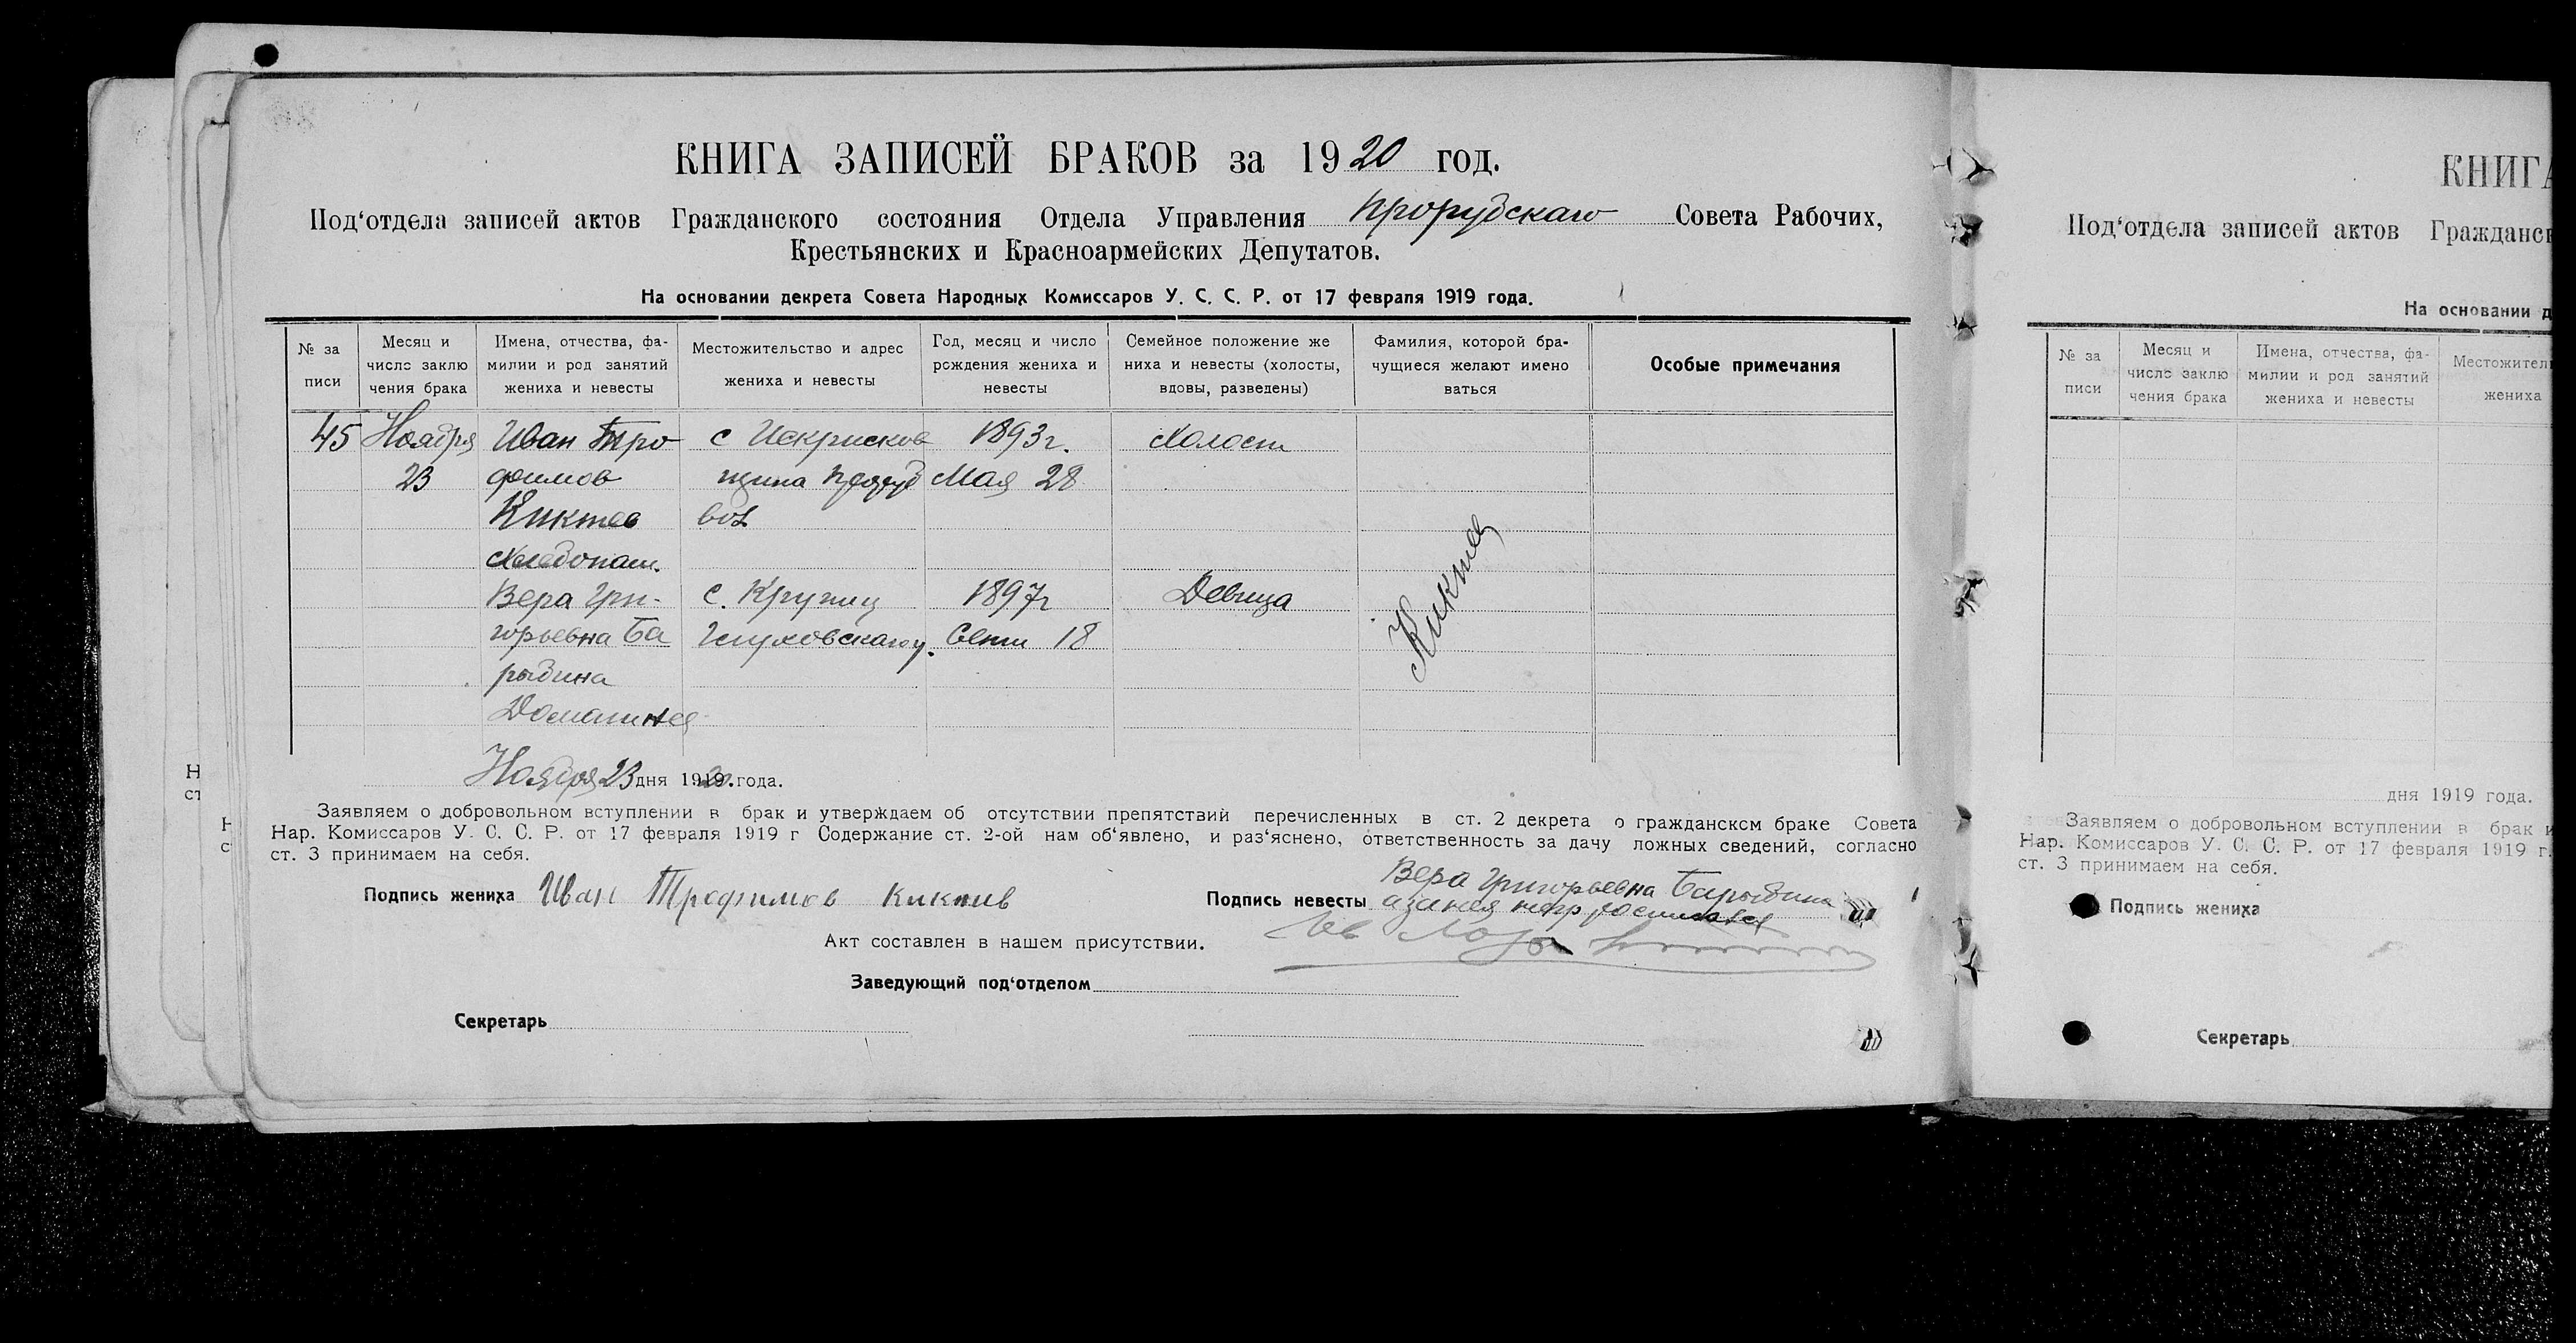 КНИГА ЗАПИСЕЙ БРАКОВ за 1920 год.
Под‘отдела записей актов Гражданского состояния Отдела Управления Прорубскаго Совета Рабочих,
Крестьянских и Красноармейских Депутатов.
На основании декрета Совета Народных Комиссаров У. С. С. Р. от 17 февраля 1919 года.
№ за
писи
Месяц и
число заклю
чения брака
Имена, отчества, фа-
милии и род занятий
жениха и невесты
Местожительство и адрес
жениха и невесты
Год, месяц и число
рождения жениха и
невесты
Семейное положение же
ниха и невесты (холосты,
вдовы, разведены)
Фамилия, которой бра-
чущиеся желают имено
ваться
Особые примечания
45 Ноября Иван Тро с Искрисков 1893г. Холост
23 фимов щина Мая 28
Киктев вол
Хлебопаш.
Вера Гри- с. Крупец 1897г Девица
горьевна Ба Глуховскаго у. Сент 18
рыбина
Домашняя
Киктев
Ноября 23 дня 1920 года.
Заявляем о добровольном вступлении в брак и утверждаем об отсутствии препятствий перечисленных в ст. 2 декрета о гражданском браке Совета
Нар. Комиссаров У. С. С. Р. от 17 февраля 1919 г Содержание ст. 2-ой нам об‘явлено, и раз‘яснено, ответственность за дачу ложных сведений, согласно
ст. 3 принимаем на себя.
Подпись жениха Иван Трофимов Киктив
Подпись невесты Вера Григорьевна Барыбина
Акт составлен в нашем присутствии.
Заведующий под‘отделом
Секретарь
КНИГА
Под‘отдела записей актов Гражданск
На основании д
№ за
писи
Месяц и
число заклю
чения брака
Имена, отчества, фа-
милии и род занятий
жениха и невесты
Местожител
жениха
дня 1919 года.
Заявляем о добровольном вступлении в брак и
Нар. Комиссаров У. С. С. Р. от 17 февраля 1919 г.
ст. 3 принимаем на себя.
Подпись жениха
Секретарь